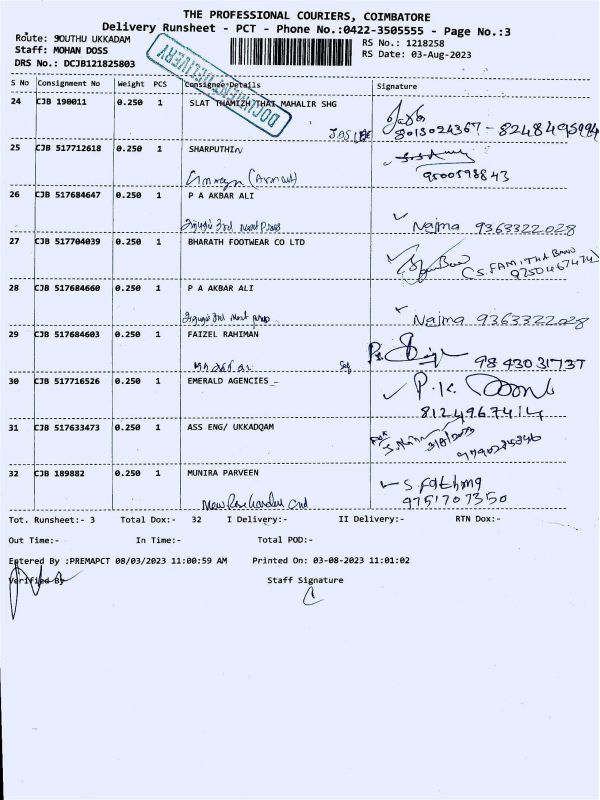 THE PROFESSIONAL COURIERS, COIMBATORE
Delivery Runsheet - PCT - Phone No.:0422-3505555 - Page No.:3
Route: SOUTHU UKKADAM
RS No.: 1218258
Staff: MOHAN DOSS
RS Date: 03-Aug-2023
DRS No.: DCJB121825803
DOCUMENT DELIVERY
S No Consignment No Weight PCS Consignee Details Signature
24 CJB 190011 0.250 1 SLAT THAMIZH THAI MAHALIR SHG
25 CJB 517712618 0.250 1 SHARPUTHIN
9500598843
26 CJB 517684647 0.250 1 P A AKBAR ALI
Najma 9363322028
27 CJB 517704039 0.250 1 BHARATH FOOTWEAR CO LTD
28 CJB 517684660 0.250 1 P A AKBAR ALI
Najma 9363322028
29 CJB 517684603 0.250 1 FAIZEL RAHIMAN
98430 31737
30 CJB 517716526 0.250 1 EMERALD AGENCIES
P.K.
8124967414
31 CJB 517633473 0.250 1 ASS ENG/ UKKADQAM
3/8/2023
32 CJB 189882 0.250 1 MUNIRA PARVEEN
S. Fathima
9751707350
Tot. Runsheet:- 3 Total Dox:- 32 I Delivery:- II Delivery:- RTN Dox:-
Out Time:- In Time:- Total POD:-
Entered By :PREMAPCT 08/03/2023 11:00:59 AM Printed On: 03-08-2023 11:01:02
Verified By Staff Signature